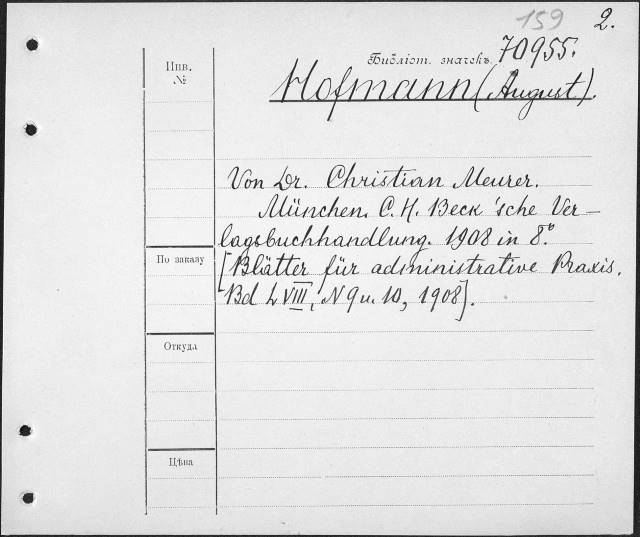 159 2.
Библіот. значекъ 70955.
Инв.
№
Hofmann (August).
Von Dr. Christian Meurer.
München. C. H. Beck'sche Ver-
lagsbuchhandlung. 1908 in 8º.
По заказу
[Blätter für administrative Praxis.
Bd LVIII, N 9 u. 10, 1908].
Откуда
Цѣна